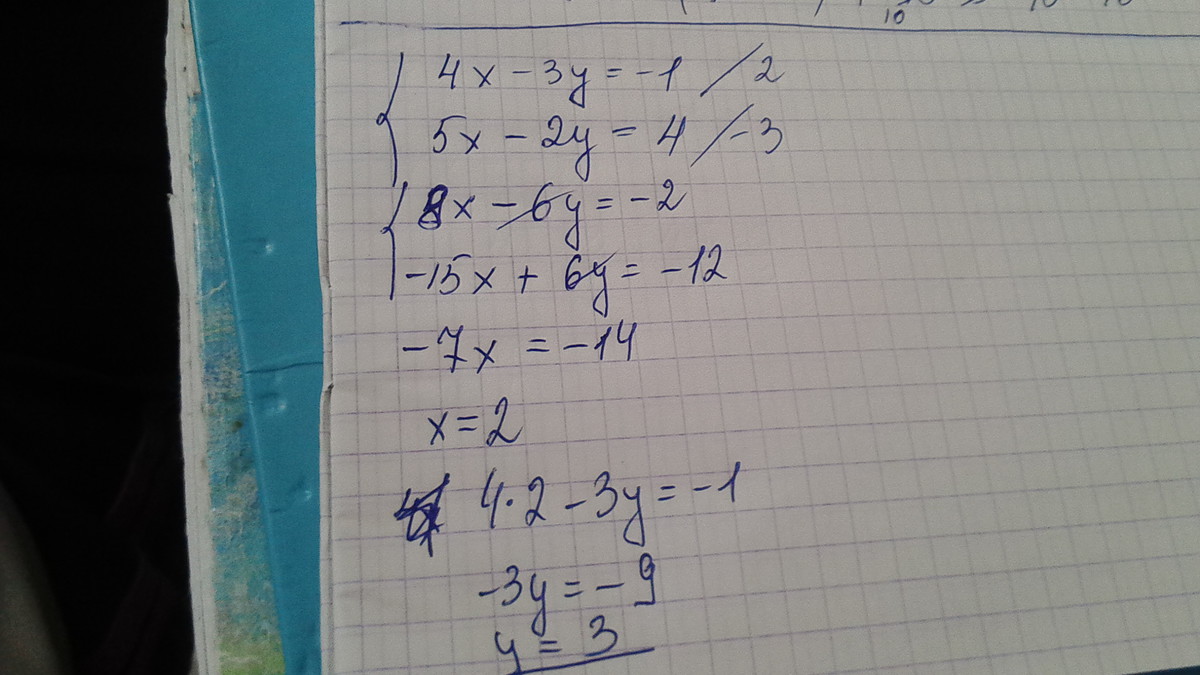 10
4x - 3y = -1 / 2
5x - 2y = 4 / -3
8x - 6y = -2
-15x + 6y = -12
-7x = -14
x = 2
4·2 - 3y = -1
-3y = -9
y = 3